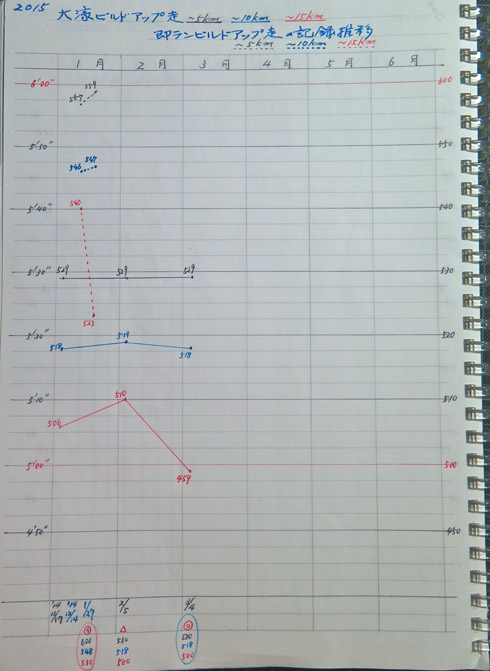 2015 大濠ビルドアップ走 ~5km ~10km ~15km
即ランビルドアップ走の記録推移
~5km ~10km ~15km
1月 2月 3月 4月 5月 6月
6'00" 600
559
557
5'50" 550
547
546
5'40" 540
540
5'30" 530
529 529 529
523
5'20" 520
519
518 518
5'10" 510
510
506
5'00" 500
459
4'50" 450
'14 '14 1/ 2/5 3/4
△
600 530 530
548 518 518
530 500 500